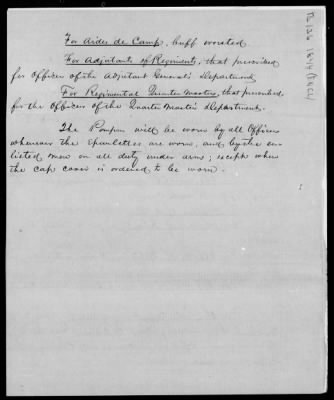 For Aides de Camp, buff worsted.
For Adjutants of Regiments, that prescribed
for Officers of the Adjutant General's Department
For Regimental Quarter Masters, that prescribed
for the Officers of the Quarter Master's Department.
The Pompon will be worn by all Officers
whenever the Epaulettes are worn, and by the en-
listed men on all duty under arms; except when
the cap cover is ordered to be worn.